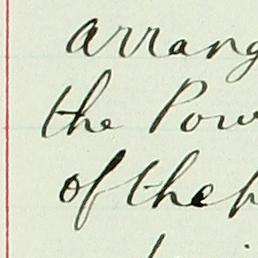 arrang
the Pow
of the p